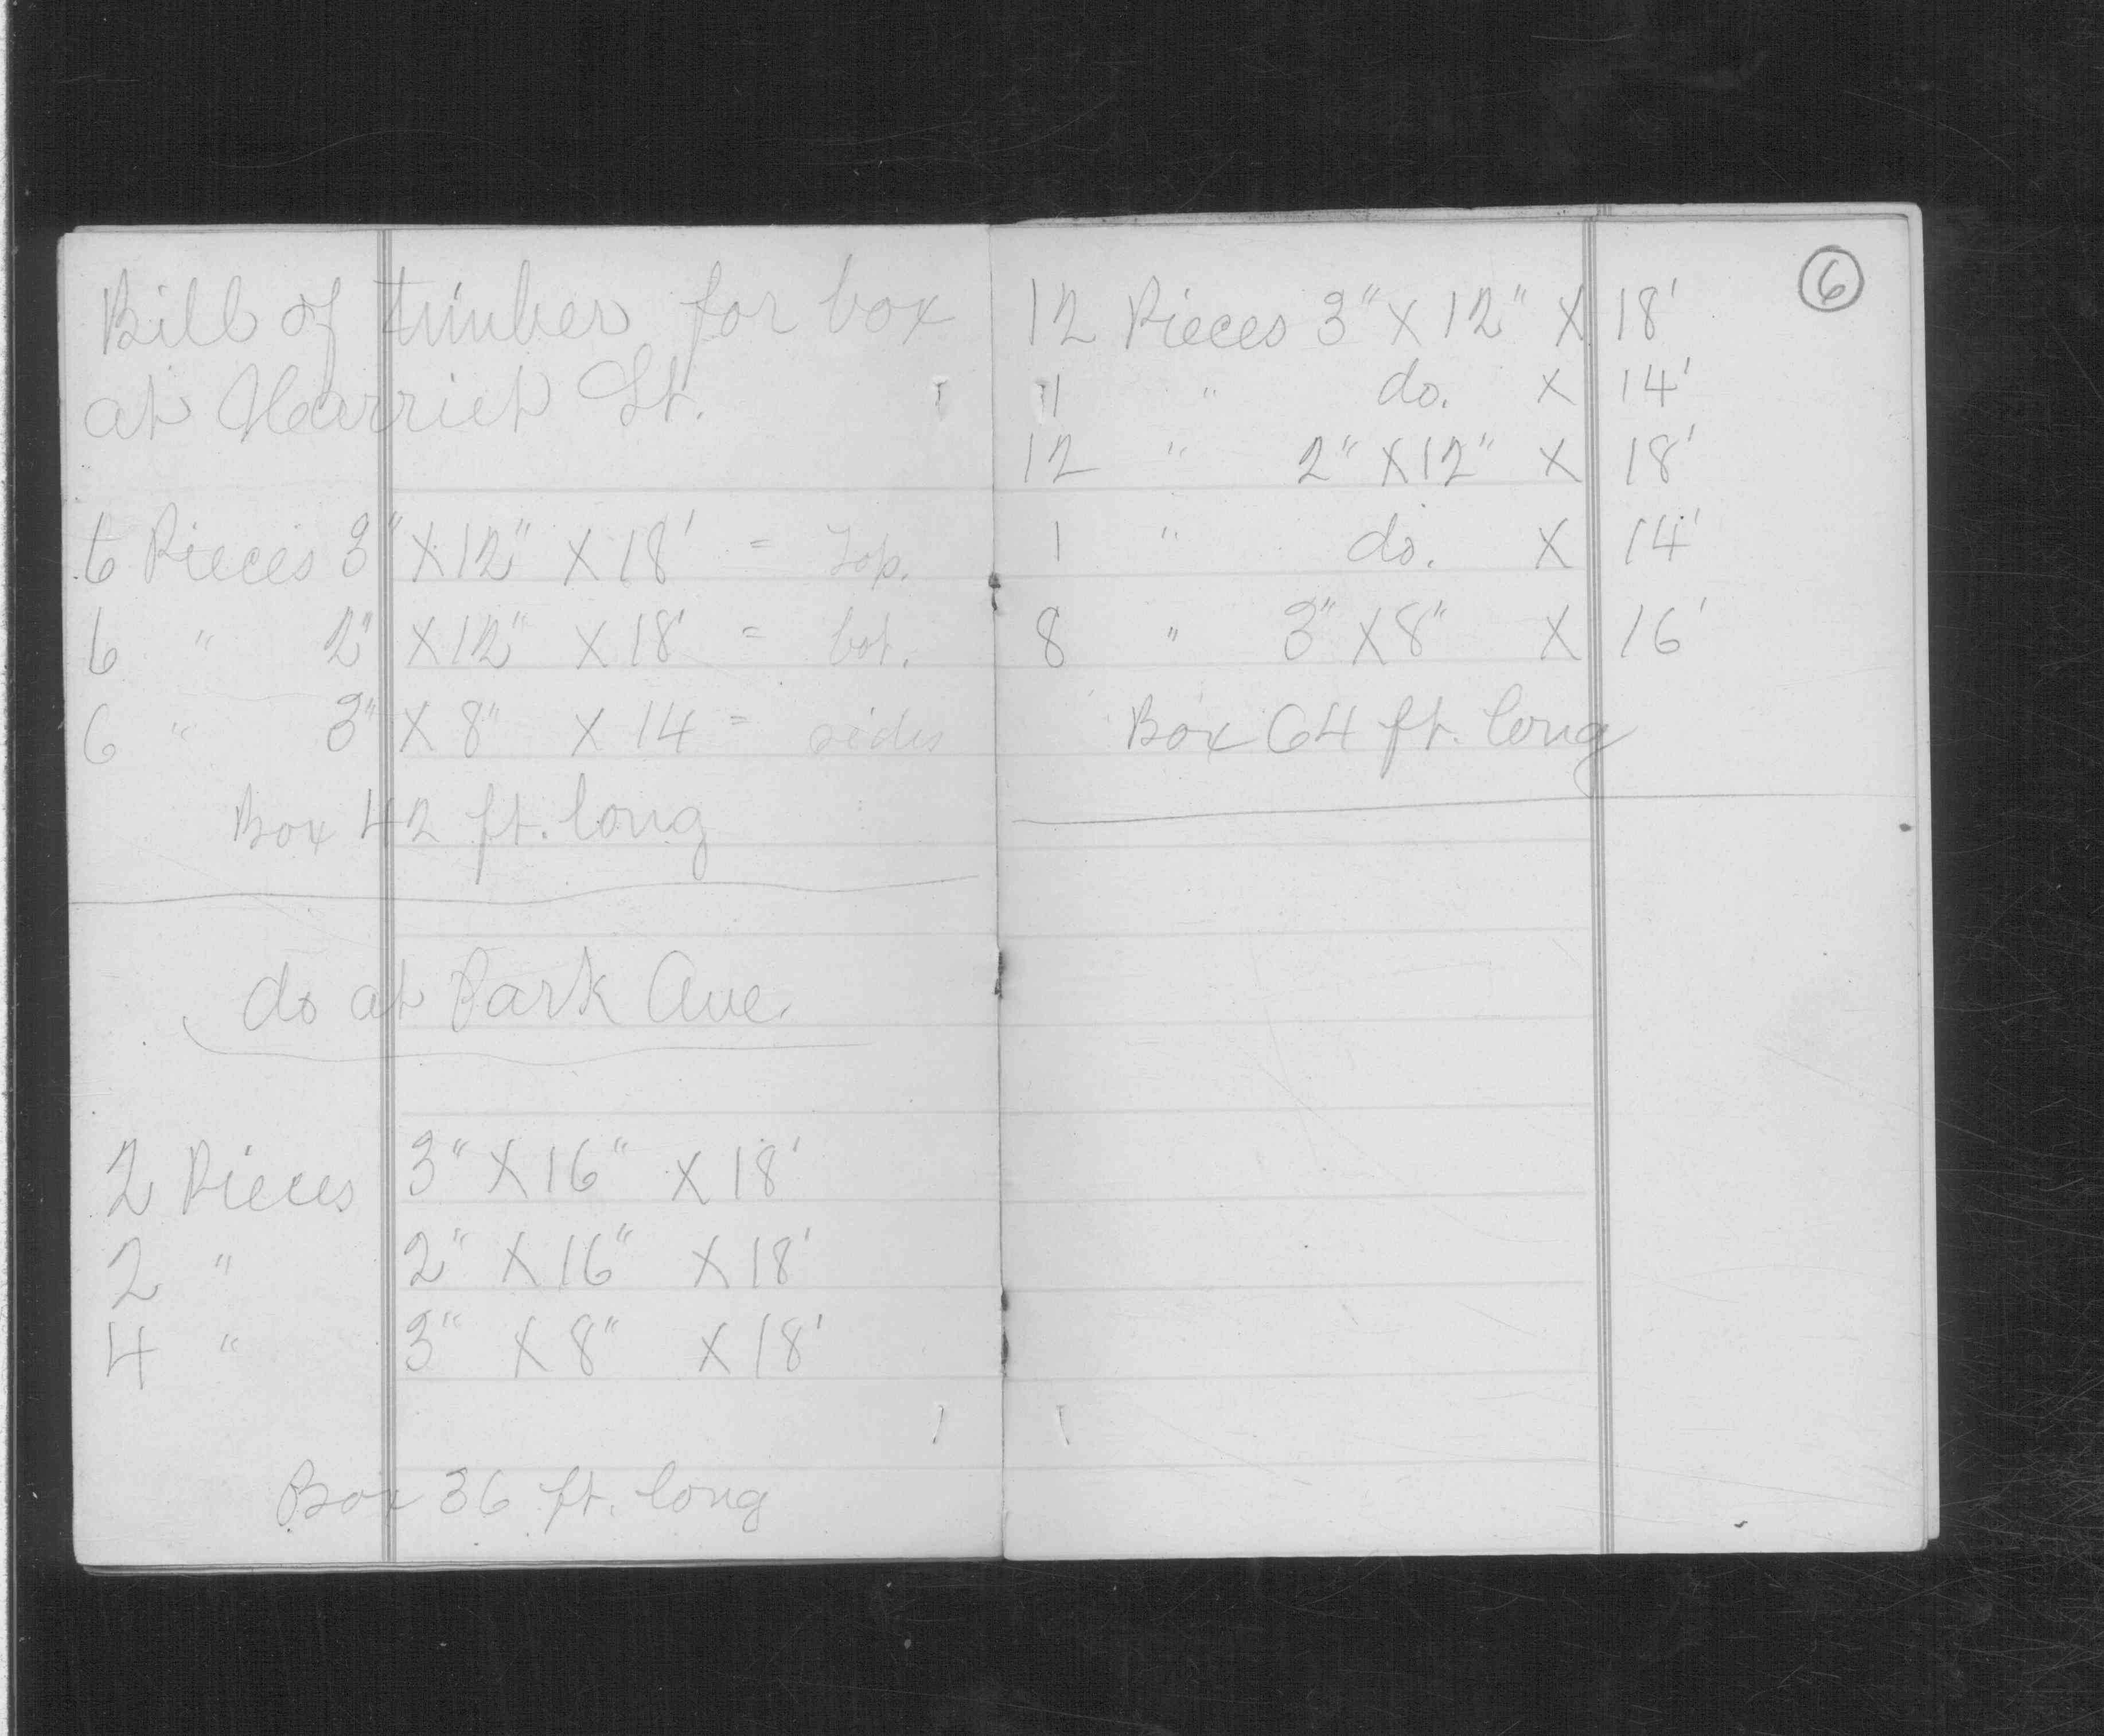 Bill of timber for box
at Harriet St.
6 Pieces 3" X 12" X 18' = Top.
6 " 2" X 12" X 18' = bot.
6 " 3" X 8" X 14 = sides
Box 42 ft. long
do at Park Ave.
2 Pieces 3" X 16" X 18'
2 " 2" X 16" X 18'
4 " 3" X 8" X 18'
Box 36 ft. long
6
12 Pieces 3" X 12" X 18'
1 " do. X 14'
12 " 2" X 12" X 18'
1 " do. X 14'
8 " 3" X 8" X 16'
Box 64 ft. long